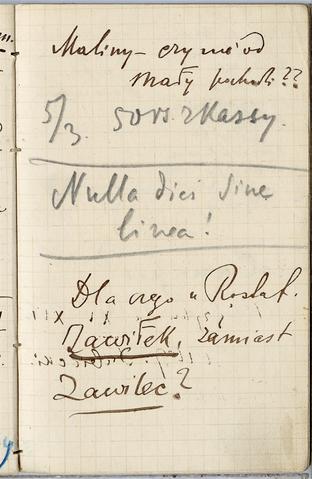 Maliny – czy nie od
mały pochodzi??
5/3. 50 rs. z Kassy.
Nulla dies sine
linea!
Dla czego u Rostaf.
Zawiłek, zamiast
Zawilec?